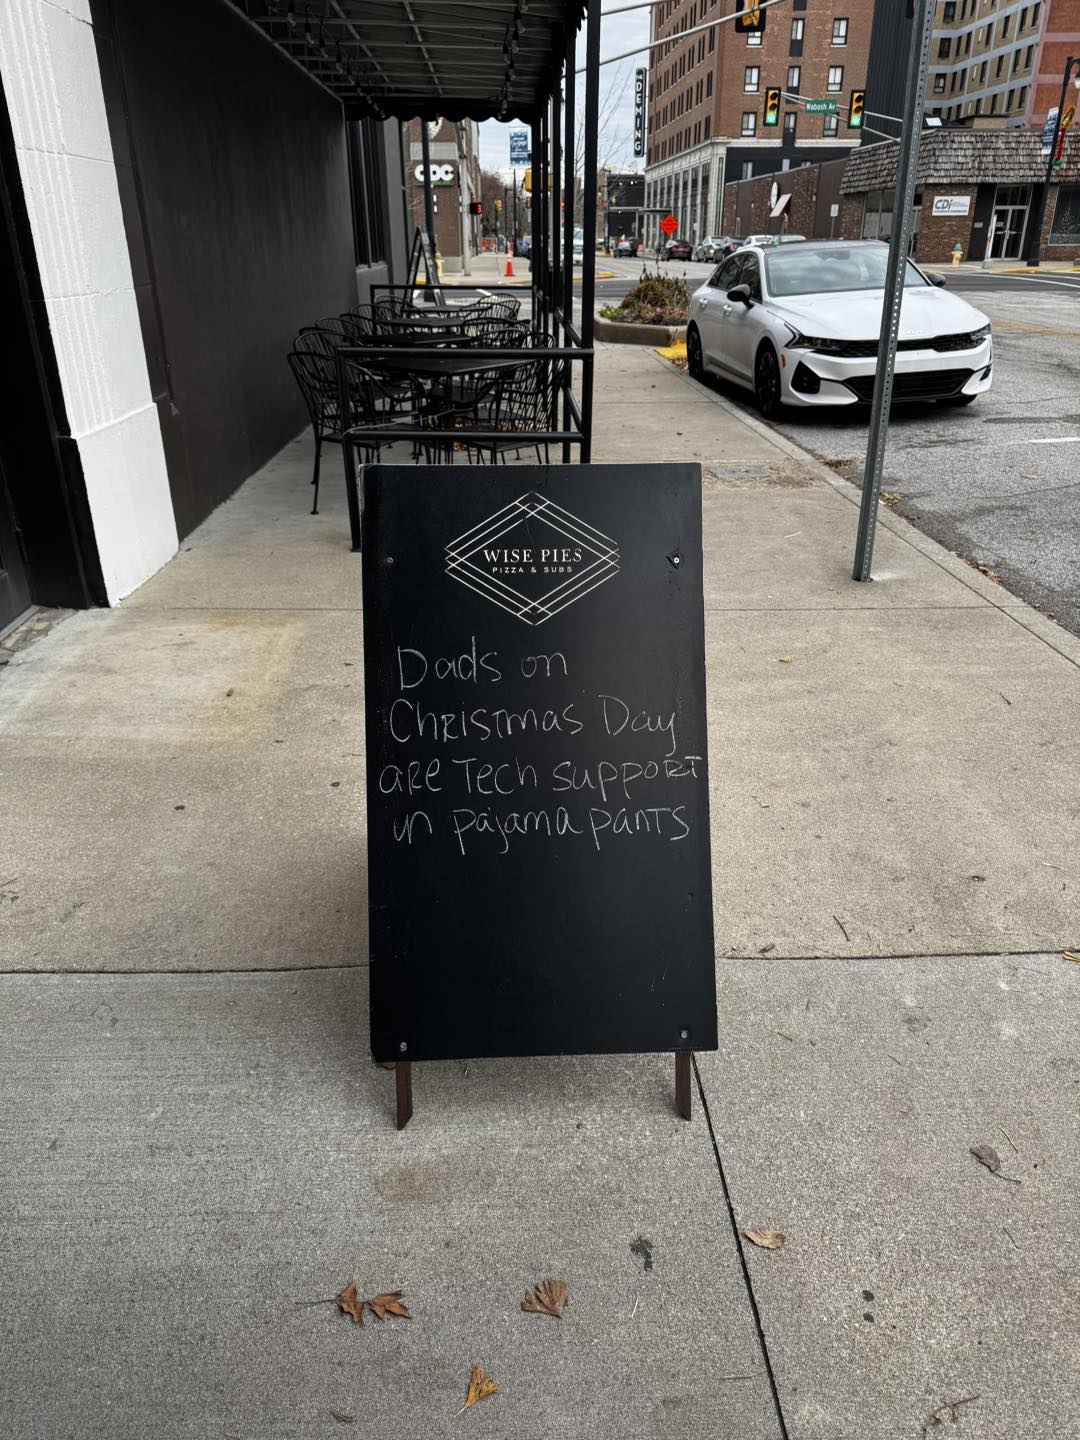 DEMING
Wabash Av
CDI
WISE PIES
PIZZA & SUBS
Dads on
Christmas Day
are Tech support
in pajama pants